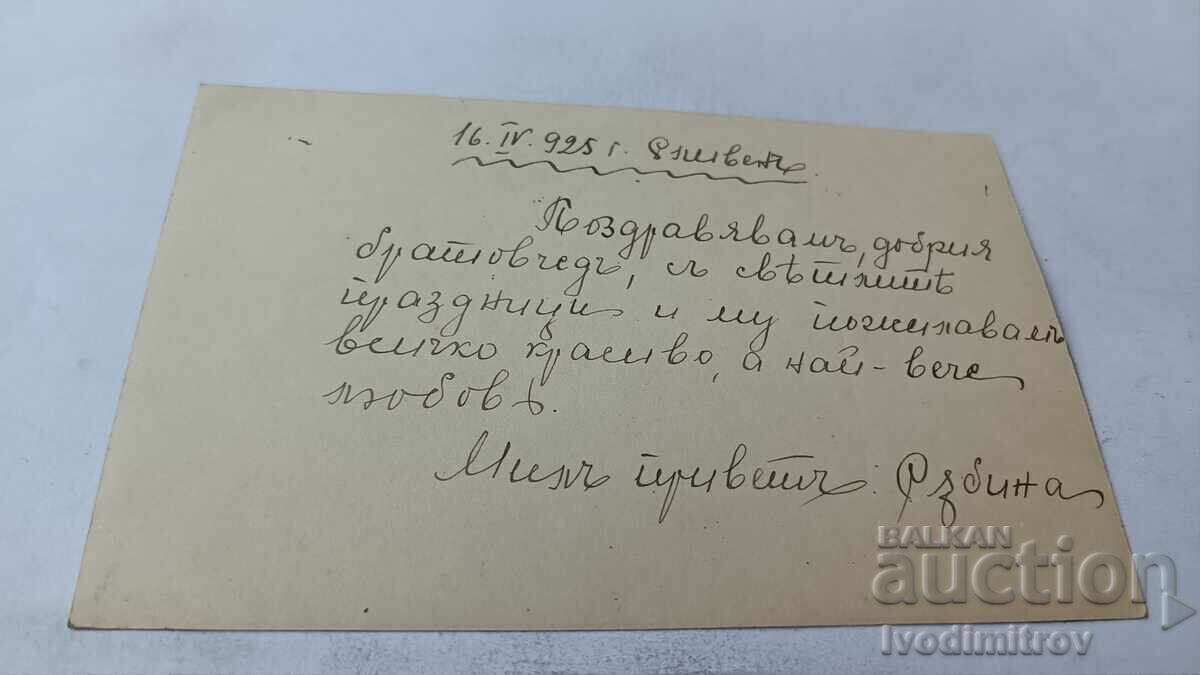 16. IV. 925 г. Сливенъ.
Поздравявамъ, добрия
братовчедъ, съ свѣтлитѣ
праздници и му пожелавамъ
всичко красиво, а най-вече
любовь.
Милъ приветъ:
BALKAN
auction
Ivodimitrov